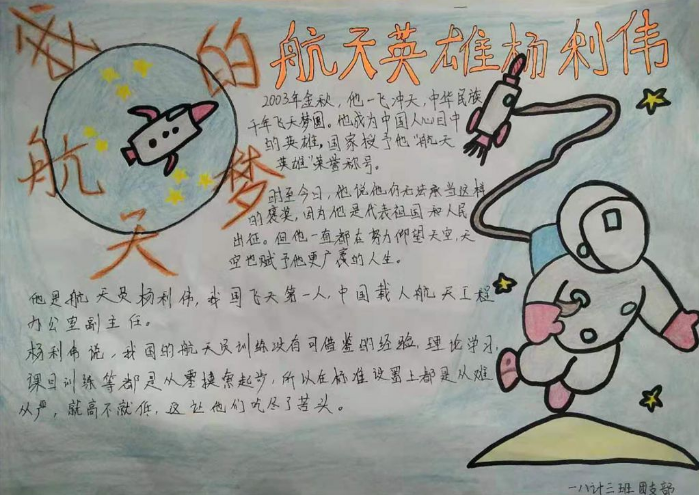 我的航天梦
航天英雄杨利伟
2003年金秋，他一飞冲天，中华民族
千年飞天梦圆。他成为中国人心目中
的英雄，国家授予他“航天
英雄”荣誉称号。
时至今日，他说他仍无法承当这样
的褒奖，因为他是代表祖国和人民
出征。但他一直都在努力仰望天空，天
空也赋予他更广袤的人生。
他是航天员杨利伟，我国飞天第一人，中国载人航天工程
办公室副主任。
杨利伟说，我国的航天员训练没有可借鉴的经验，理论学习，
课目训练等都是从零摸索起步，所以在标准设置上都是从难
从严，就高不就低，这让他们吃尽了苦头。
一八计三班团支部